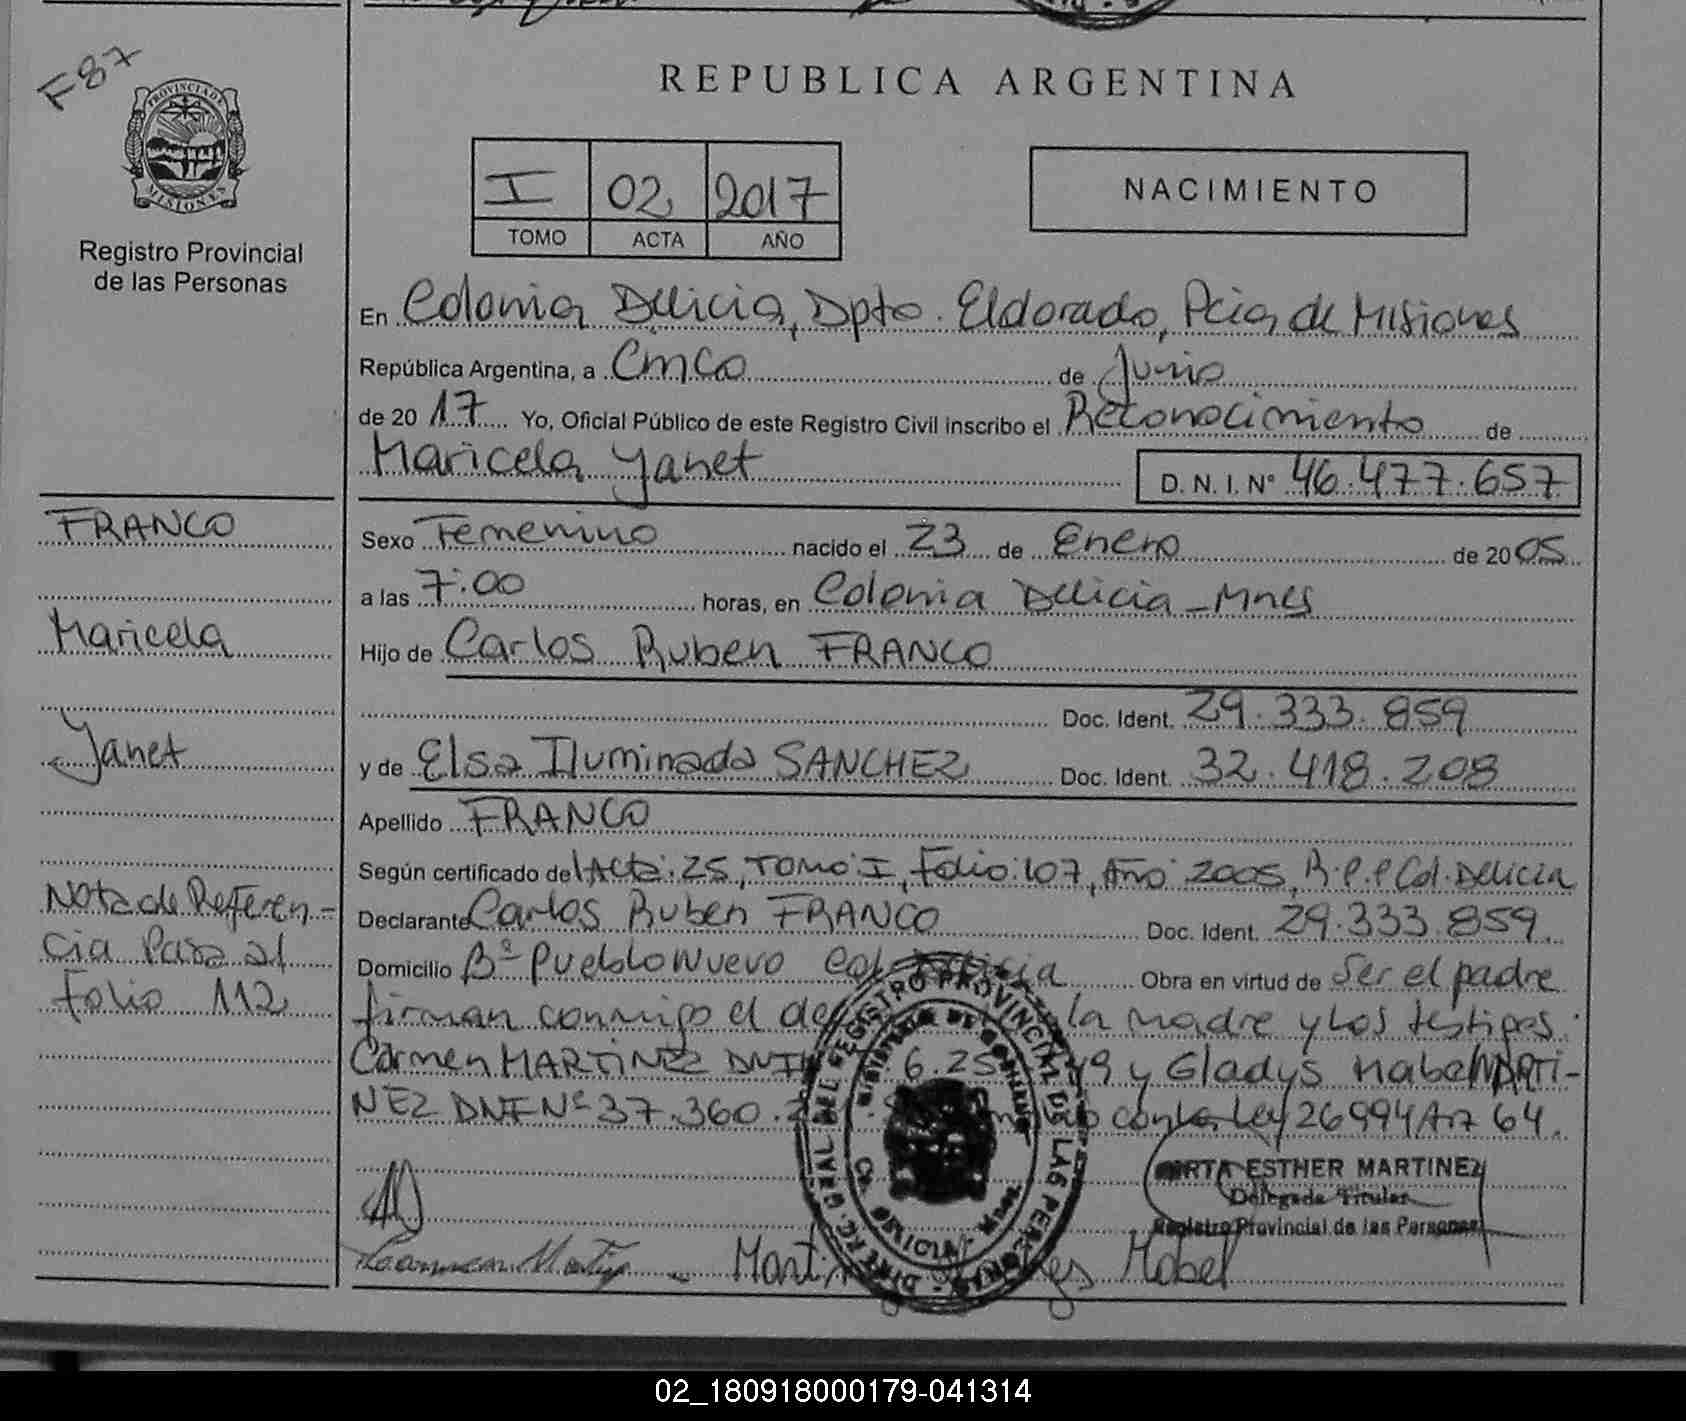 F87
PROVINCIA DE
MISIONES
Registro Provincial
de las Personas
REPUBLICA ARGENTINA
I 02 2017
TOMO ACTA AÑO
NACIMIENTO
En Colonia Delicia, Dpto. Eldorado, Pcia de Misiones
República Argentina, a Cinco de Junio
de 20 17 Yo, Oficial Público de este Registro Civil inscribo el Reconocimiento de
Maricela Yanet
D. N. I. N° 46.477.657
FRANCO
Maricela
Yanet
Nota de Referen-
cia Pasa al
Folio 112
Sexo Femenino nacido el 23 de Enero de 20 05
a las 7:00 horas, en Colonia Delicia - Mnes
Hijo de Carlos Ruben FRANCO
Doc. Ident. 29.333.859
y de Elsa Iluminada SANCHEZ Doc. Ident. 32.418.208
Apellido FRANCO
Según certificado de Acta: 25, Tomo I, Folio: 107, Año 2005, R.P.P Col. Delicia
Declarante Carlos Ruben FRANCO Doc. Ident. 29.333.859
Domicilio Bº Pueblo Nuevo Col. Delicia Obra en virtud de Ser el padre
firman conmigo el la madre y los testigos:
Carmen MARTINEZ DNI 6.25 49 y Gladys Mabel MARTI-
NEZ DNI Nº 37.360. con la Ley 26994 Art 64.
DIR. GRAL. DEL REGISTRO PROVINCIAL DE LAS PERSONAS
MINISTERIO DE GOBIERNO
MIRTA ESTHER MARTINEZ
Delegada Titular
Registro Provincial de las Personas
Mabel
02_180918000179-041314